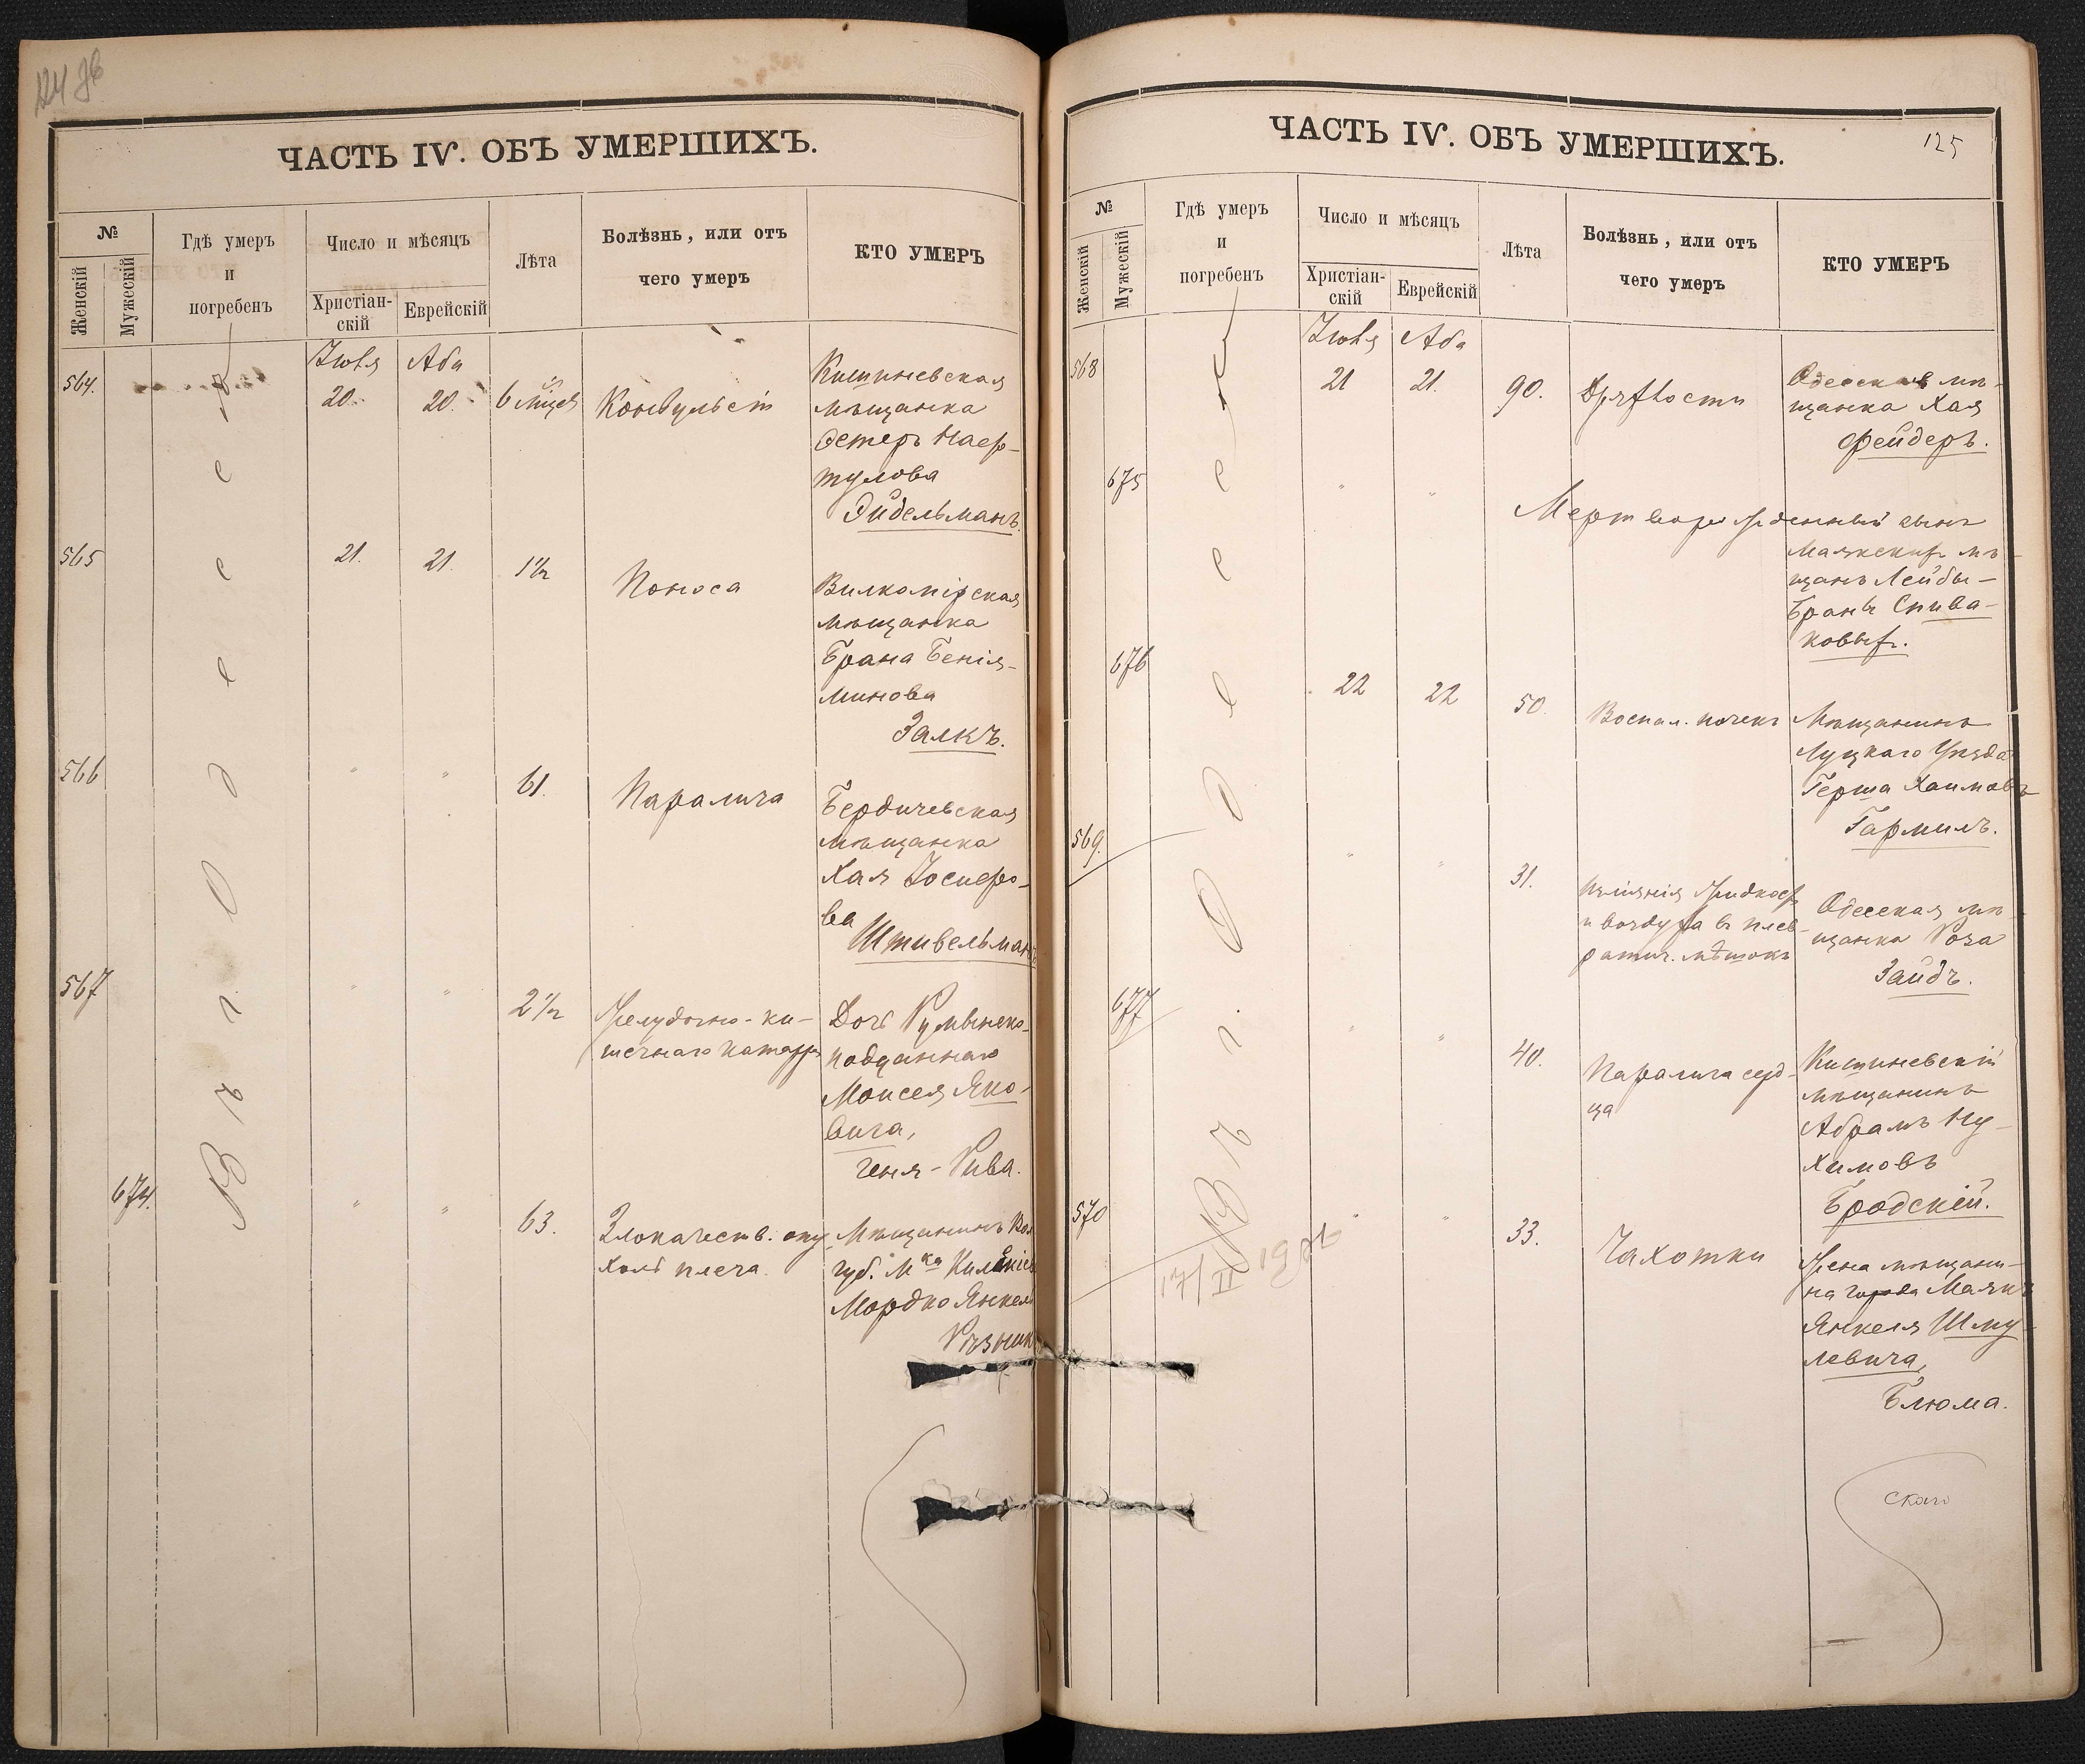 ЧАСТЬ IV. ОБЪ УМЕРШИХЪ.
№
Женскій
Мужескій
Гдѣ умеръ
и
погребенъ
Число и мѣсяцъ
Христіан-
скій
Еврейскій
Лѣта
Болѣзнь, или отъ
чего умеръ
КТО УМЕРЪ
Въ г. Одессѣ
Іюля Аба
564. 20. 20. 6 мѣцевъ Конвульсіи
Кишиневская
мѣщанка
Эстеръ Наф-
тулова
Эйдельманъ.
565 21. 21. 1½ Поноса
Вилкомірская
мѣщанка
Брана Бенія-
минова
Залкъ.
566 " " 61. Паралича
Бердичевская
мѣщанка
Хая Іосифо-
ва
Штивельманъ
567 " " 2½ Желудочно-ки-
шечнаго катарра
Дочь Румынско-
подданнаго
Моисея Яко-
вича,
Геня-Рива.
674. " " 63. Злокачеств. опу
холь плеча.
Мѣщанинъ Вол
губ. М-ка
Мордко Янкел
Рѣзник
ЧАСТЬ IV. ОБЪ УМЕРШИХЪ.
125
№
Женскій
Мужескій
Гдѣ умеръ
и
погребенъ
Число и мѣсяцъ
Христіан-
скій
Еврейскій
Лѣта
Болѣзнь, или отъ
чего умеръ
КТО УМЕРЪ
Въ г. Одессѣ
Іюля Аба
568 21 21. 90. Дряхлости
Одесская мѣ-
щанка Хая
Фейдеръ.
675 " " Мертворожденный сынъ
Маякскихъ мѣ-
щанъ Лейбы-
Браны Спива-
ковыхъ.
676 22 22 50. Воспал. почекъ
Мѣщанинъ
Луцкаго Уѣзда
Герша Хаимовъ
Гармилъ.
569. " " 31. Изліянія жидкост
и воздуха въ плев-
ратич. мѣшокъ
Одесская мѣ
щанка Роза
Зайдъ.
677 " " 40. Паралича серд-
ца
Кишиневскій
мѣщанинъ
Абрамъ Ну-
химовъ
Бродскій.
570 " " 33. Чахотки
Жена мѣщани-
на города Маякъ
Янкеля Шму-
левича,
Блюма.
17/II
скаго